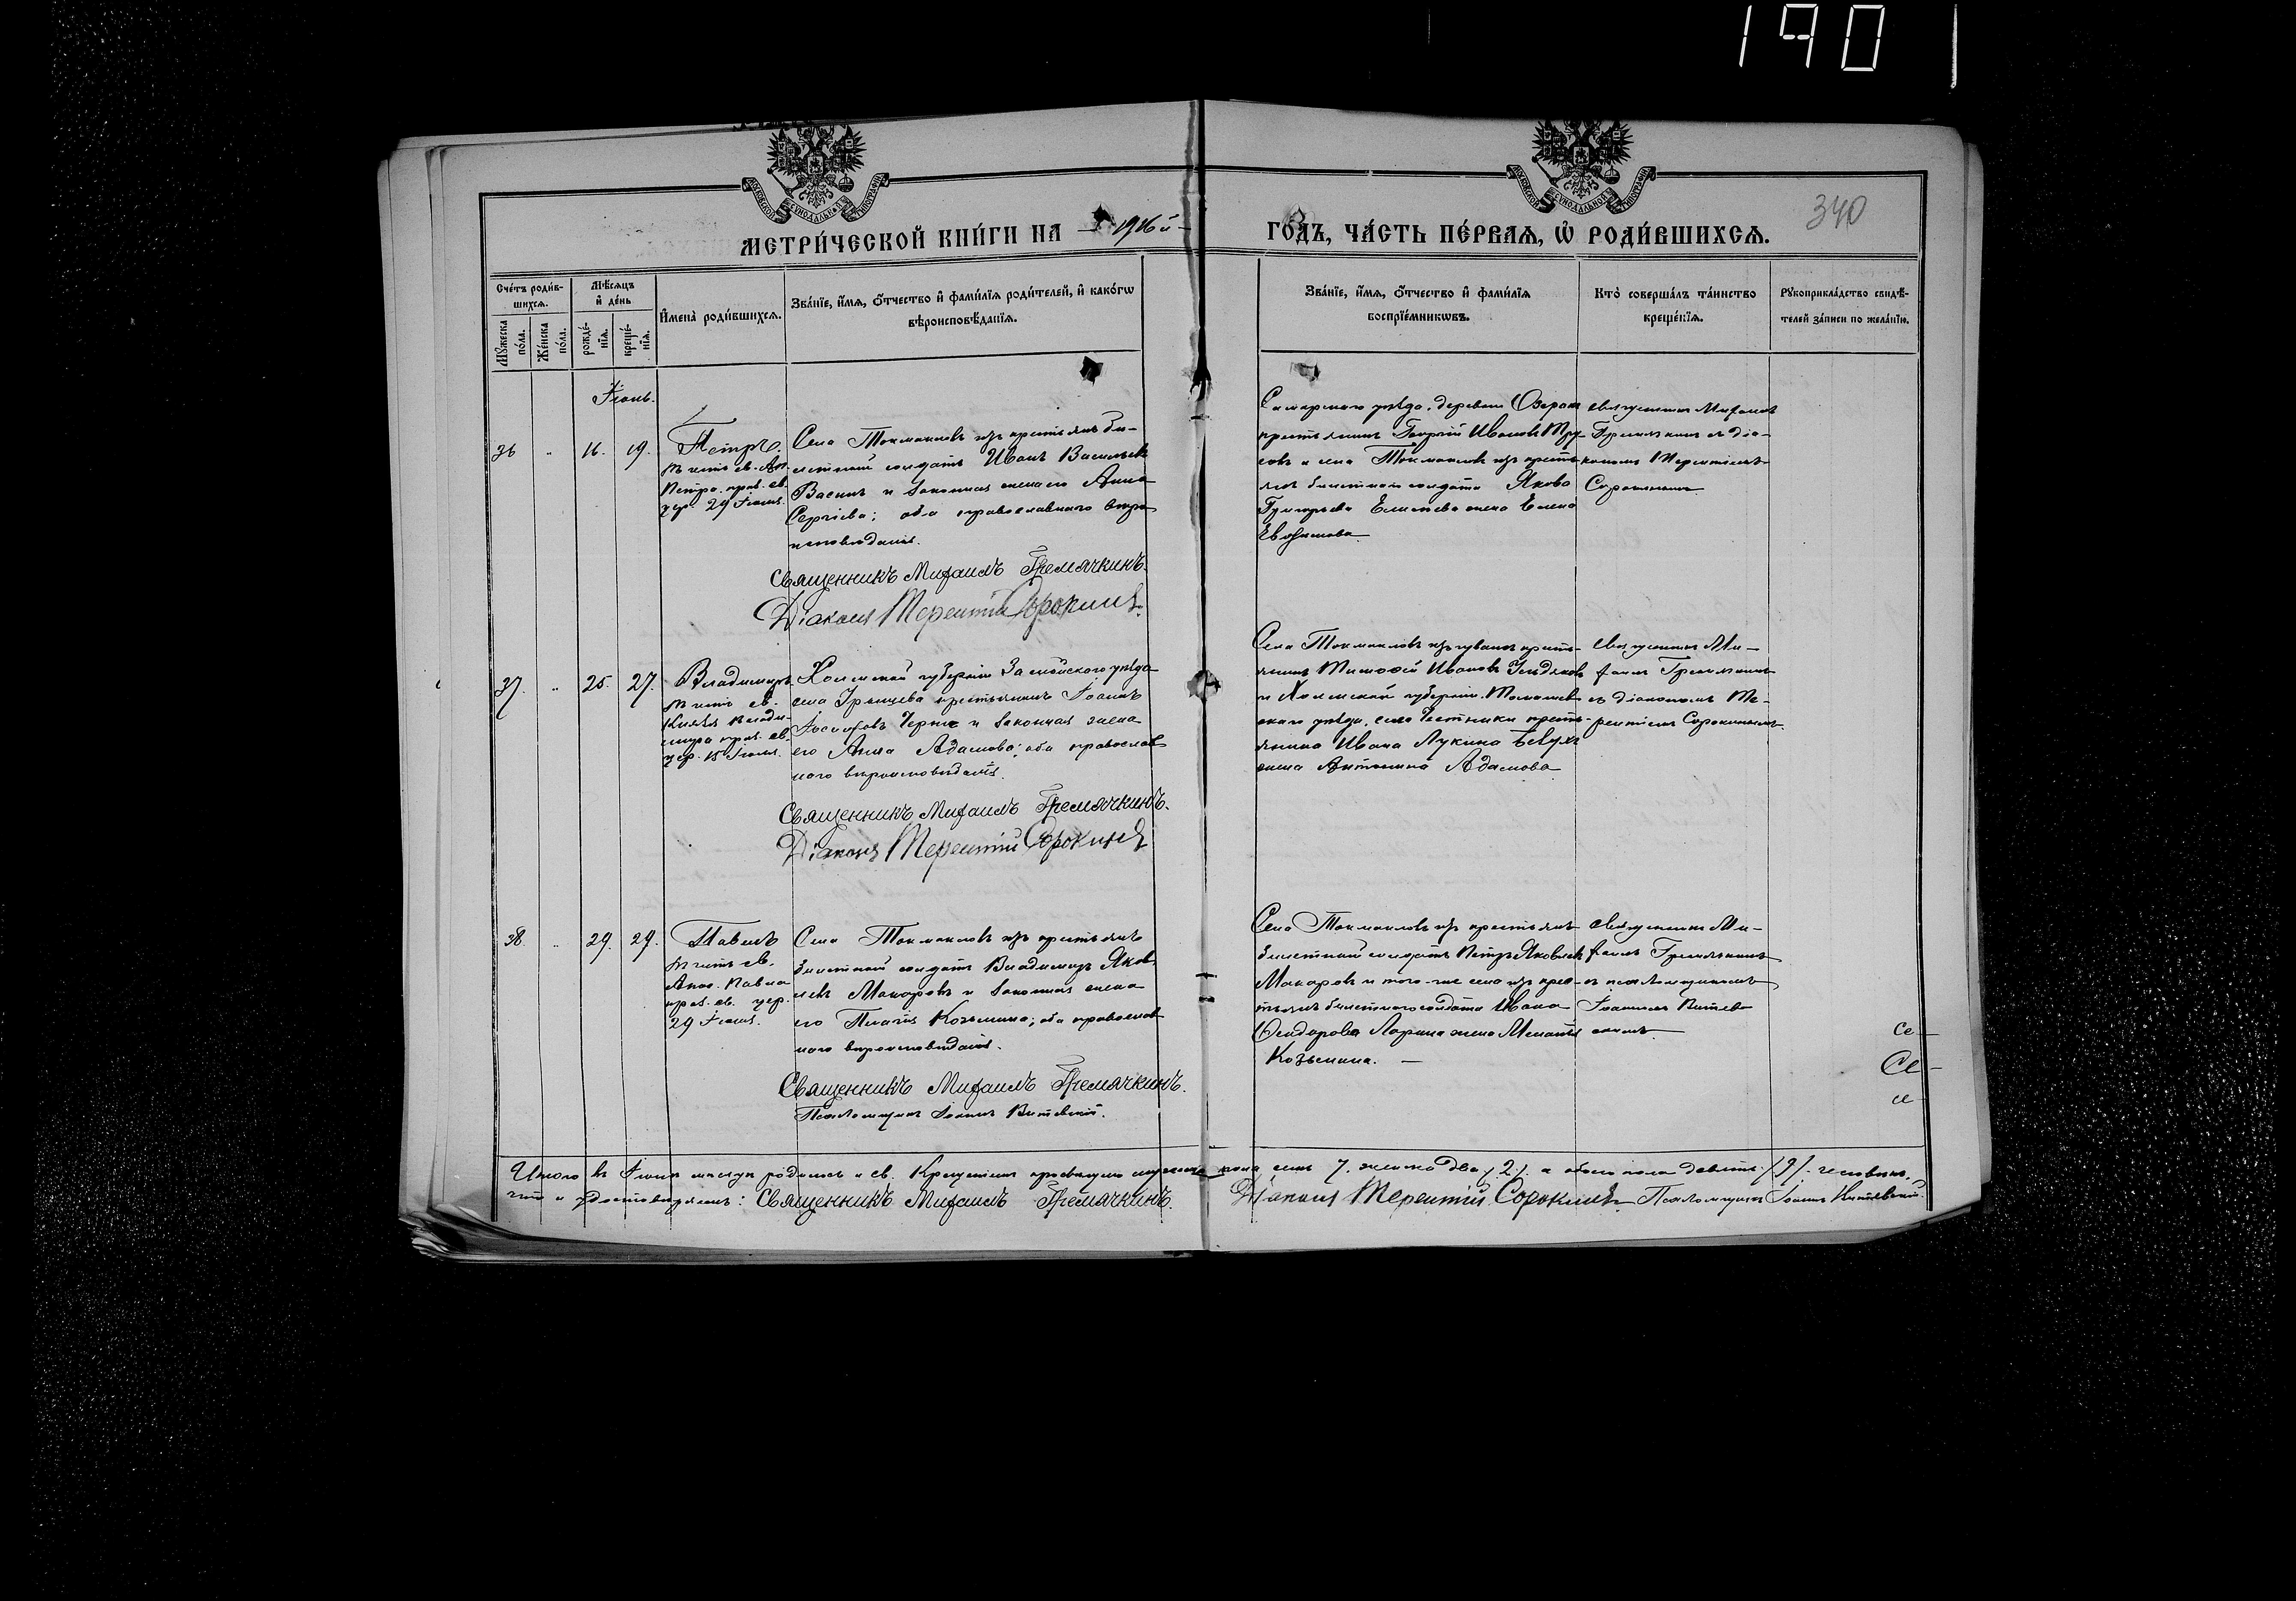 190
340
МОСКОВСКОЙ СѴНОДАЛЬНОЙ ТИПОГРАФІИ
МОСКОВСКОЙ СѴНОДАЛЬНОЙ ТИПОГРАФІИ
МЕТРИ́ЧЕСКОЙ КНИ́ГИ НА 1916й ГО́ДЪ, ЧА́СТЬ ПЕ́РВАѦ, Ѡ҆ РОДИ́ВШИХСѦ.
Сче́тъ роди́в-
шихсѧ.
Мꙋ́жеска по́ла.
Же́нска по́ла.
Мѣ́сѧцъ и҆ де́нь
рожде́-нїѧ.
креще́-нїѧ.
И҆мена̀ роди́вшихсѧ.
Зва́нїе, и҆́мѧ, ѻ҆́тчество и҆ фами́лїѧ роди́телей, и҆ како́гѡ
вѣроисповѣ́данїѧ.
Зва́нїе, и҆́мѧ, ѻ҆́тчество и҆ фами́лїѧ
воспрїе́мникѡвъ.
Кто̀ соверша́лъ та́инство
креще́нїѧ.
Рꙋкоприкла́дство свидѣ́-
телей за́писи по жела́нїю.
Іюнь.
36 " 16. 19.
Петръ.
въ честь св. Ап.
Петра. праз. св.
цер. 29 Іюня.
Села Токмаклов изъ крестьянъ би-
летный солдатъ Иванъ Васильевъ
Васинъ и законная жена его Анна
Сергіева; оба православнаго веро
исповеданія.
Священникъ Михаилъ Гремячкинъ.
Діаконъ Терентій Сорокинъ.
Самарскаго уѣзда, деревни
крестьянинъ Георгій Ивановъ
и села Токмаклов изъ кресть-
янъ билетнаго солдата Якова
Григорьева жена Елена
Евфимова
священникъ Михаилъ
Гремячкинъ съ діа-
кономъ Терентіемъ
Сорокинымъ
37. " 25. 27.
Владимиръ
въ честь св.
Князя Влади-
мира праз. св.
цер. 15 Іюля.
Холмской губерніи Замойского уѣзда
села крестьянинъ Іоаннъ
Іосифовъ и законная жена
его Анна Адамова; оба православ
наго вероисповеданія.
Священникъ Михаилъ Гремячкинъ.
Діаконъ Терентій Сорокинъ
Села Токмаклов изъ чувашъ кресть-
янинъ Тимофей Ивановъ
и Холмской губерніи, Томашев
скаго уѣзда, села крестьянина Ивана Лукина
жена Антонина Адамова
священникъ Ми-
хаилъ Гремячкинъ
съ діакономъ Те-
рентіемъ Сорокинымъ.
38 " 29. 29.
Павелъ
въ честь св.
Апос. Павла
праз. св. цер.
29 Іюня.
Села Токмаклов изъ крестьянъ
билетный солдатъ Владимиръ Яков-
левъ Макаровъ и законная жена
его Козьмина; оба православ
наго вероисповеданія.
Священникъ Михаилъ Гремячкинъ.
Псаломщикъ Іоаннъ Витевский.
Села Токмаклов изъ крестьянъ
билетный солдатъ Петръ Яковлевъ
Макаровъ и того-же села изъ крес-
тьянъ билетнаго солдата Ивана
Ѳеодорова Ларина жена
Козьмина. —
священникъ Ми-
хаилъ Гремячкинъ
съ псаломщикомъ
Іоанномъ Витев
скимъ
Итого въ Іюне месяце родилось и св. Крещеніемъ просвещено мужеска пола семь 7. женска два /2/. а обоего пола девять /9/. человекъ,
что и удостоверяемъ: Священникъ Михаилъ Гремячкинъ. Діаконъ Терентій Сорокинъ Псаломщикъ Іоаннъ Витевский.